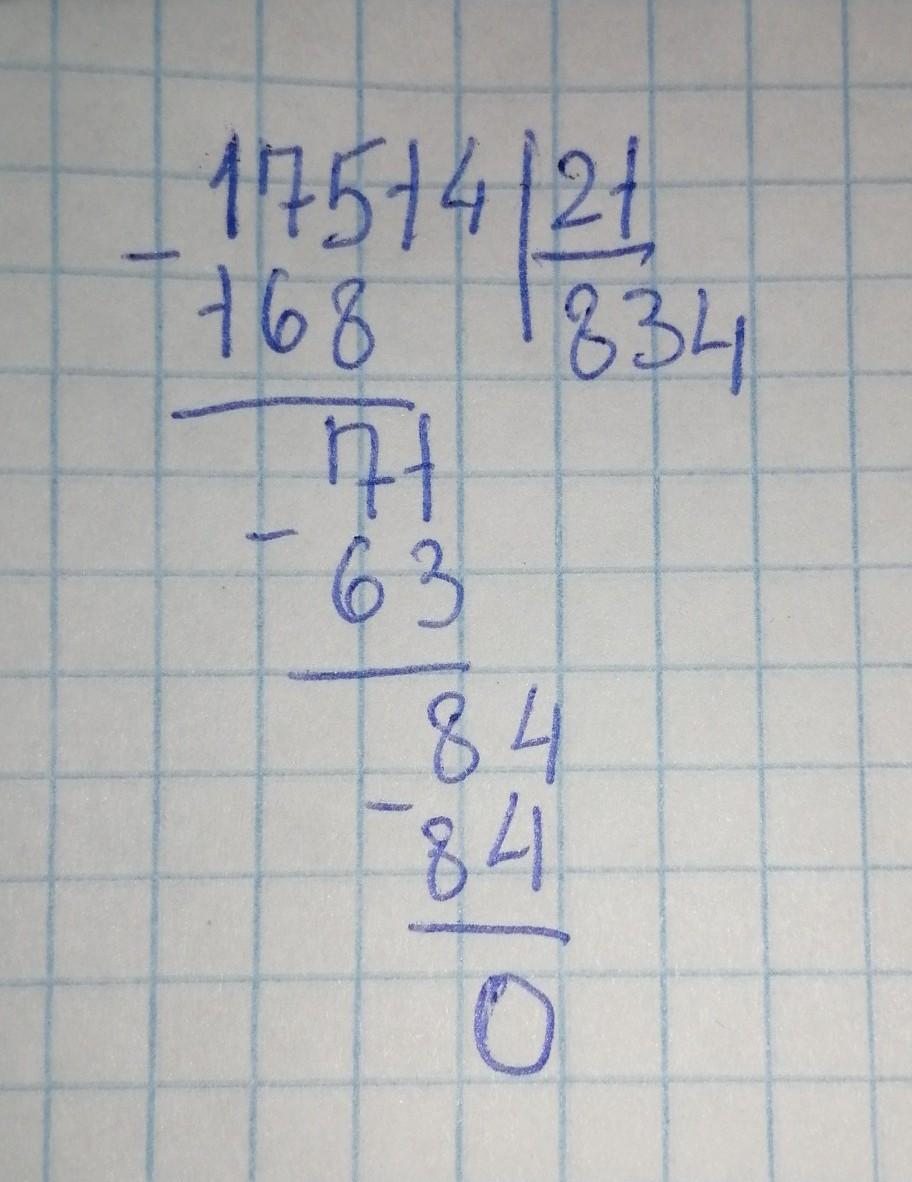 17514 21
- 168 834
71
- 63
84
- 84
0